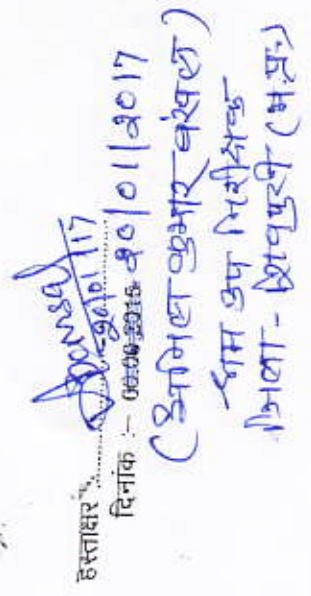 हस्ताक्षर.............
20/01/17
दिनांक :- 00.06.2015 20/01/2017
(अनिल कुमार बंसल)
श्रम उप निरीक्षक
जिला - शिवपुरी (म.प्र.)